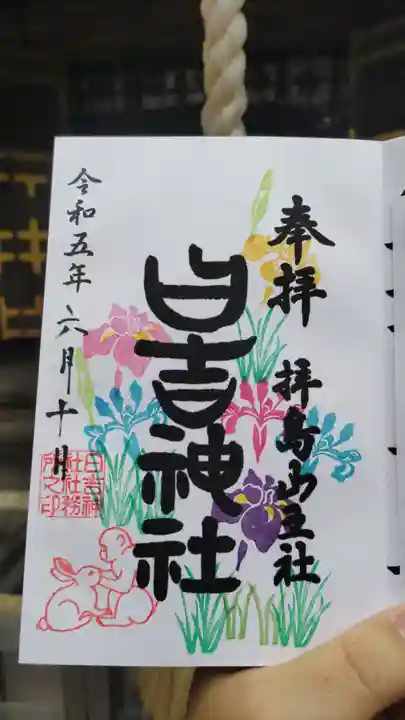 奉拝 拝島山王社
日吉神社
令和五年六月十日
日吉神
社社務
所之印